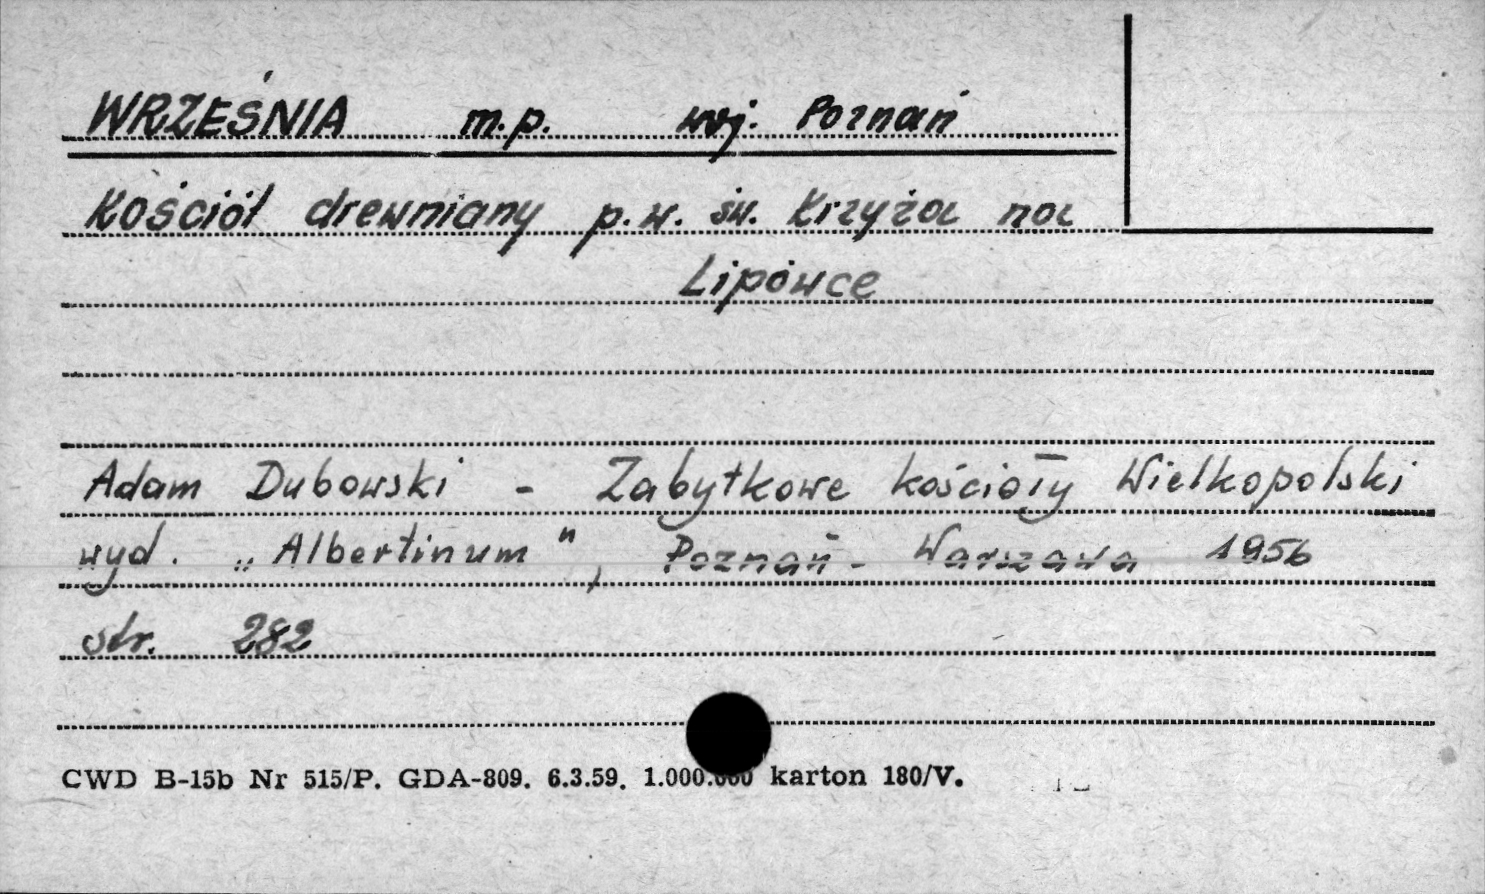 WRZEŚNIA m.p. woj. Poznań
Kościół drewniany p.w. św. Krzyża na
Lipówce
Adam Dubowski - Zabytkowe kościoły Wielkopolski
wyd. „Albertinum", Poznań - Warszawa 1956
str. 282
CWD B-15b Nr 515/P. GDA-809. 6.3.59. 1.000.000 karton 180/V.